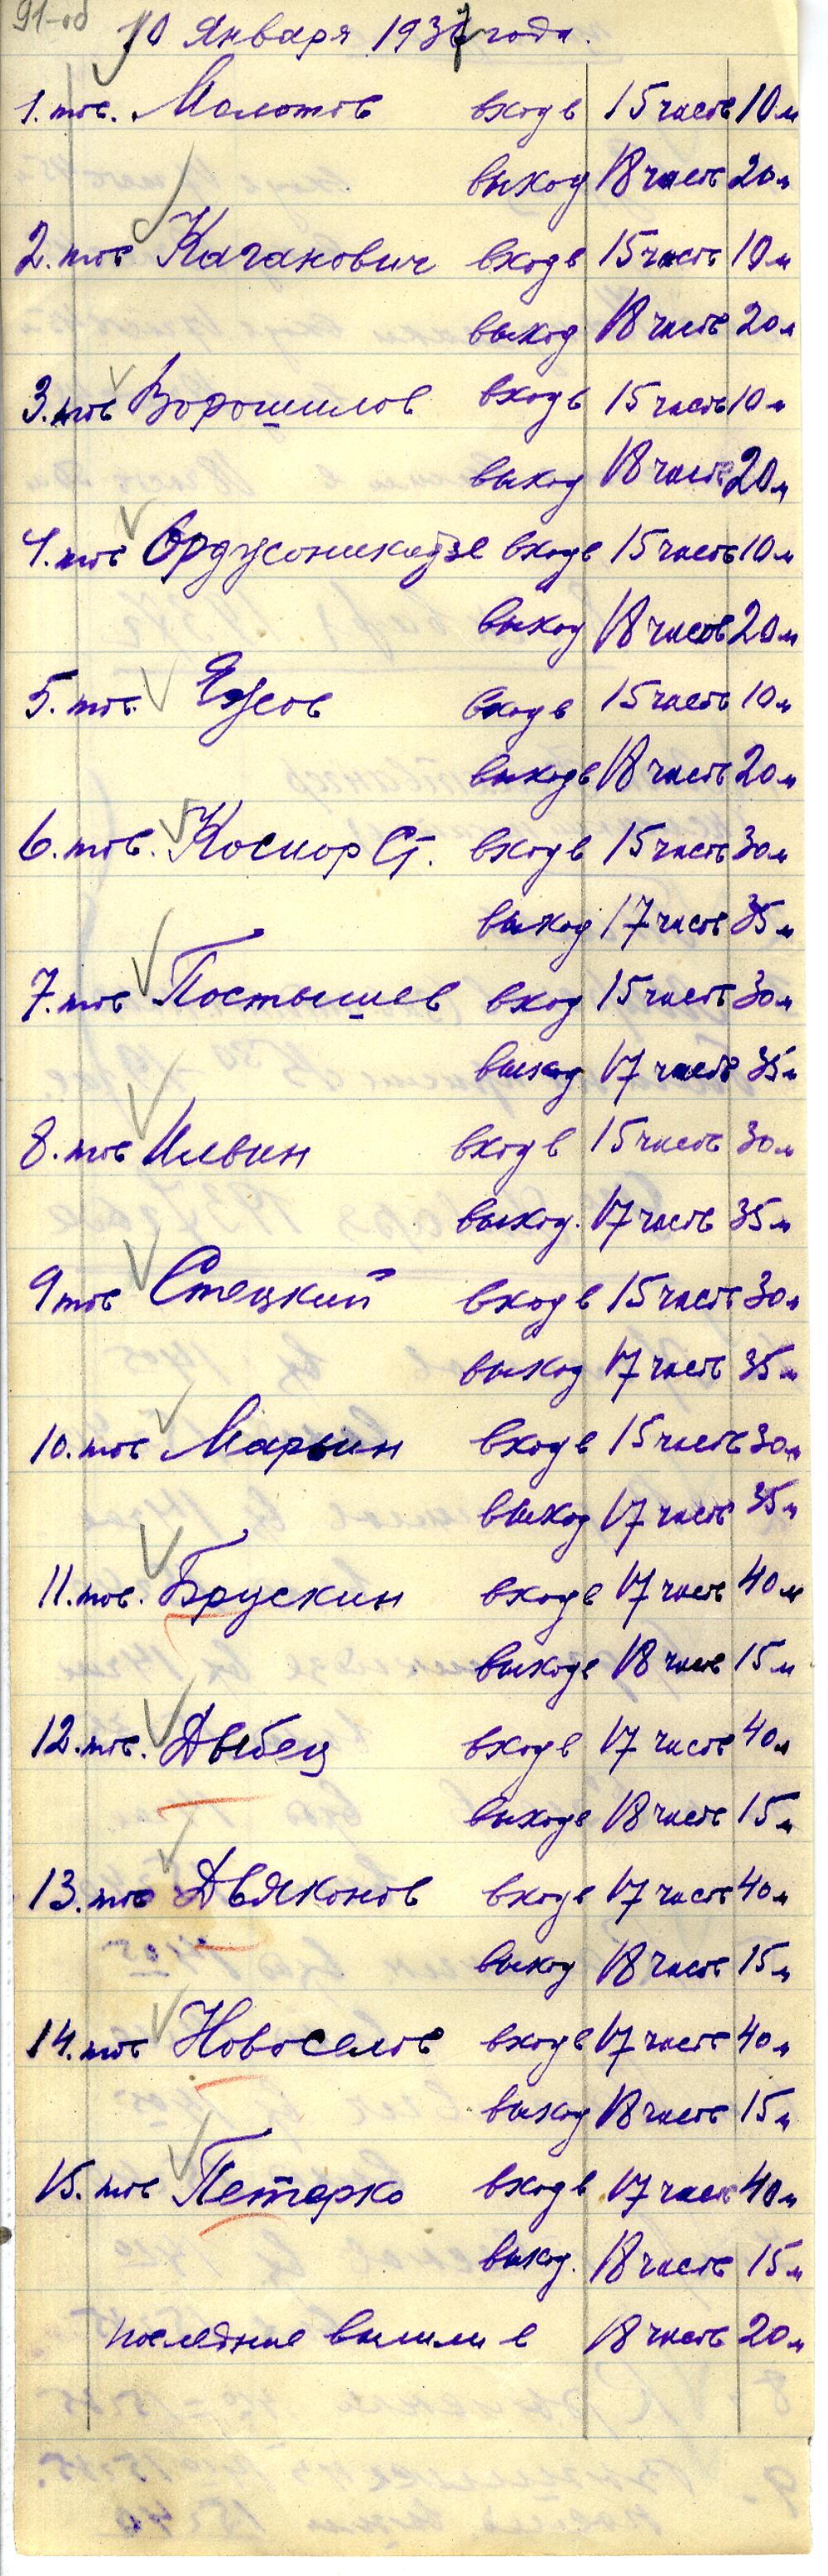 91-об
10 Января 1937 года.
1. тов. Молотов вход в 15 часов 10 м
выход 18 часов 20 м
2. тов Каганович вход в 15 часов 10 м
выход 18 часов 20 м
3. тов Ворошилов вход в 15 часов 10 м
выход 18 часов 20 м
4. тов Орджоникидзе вход в 15 часов 10 м
выход 18 часов 20 м
5. тов. Ежов вход в 15 часов 10 м
выход в 18 часов 20 м
6. тов. Косиор Ст. вход в 15 часов 30 м
выход 17 часов 35 м
7. тов Постышев вход 15 часов 30 м
выход 17 часов 35 м
8. тов Ильин вход в 15 часов 30 м
выход. 17 часов 35 м
9 тов Стецкий вход в 15 часов 30 м
выход 17 часов 35 м
10. тов Марьин вход в 15 часов 30 м
выход 17 часов 35 м
11. тов. Брускин вход в 17 часов 40 м
выход в 18 часов 15 м
12. тов. Дыбец вход в 17 часов 40 м
выход в 18 часов 15 м
13. тов Дьяконов вход в 17 часов 40 м
выход 18 часов 15 м
14. тов Новоселов вход в 17 часов 40 м
выход 18 часов 15 м
15. тов Петерко вход в 17 часов 40 м
выход. 18 часов 15 м
последние вышли в 18 часов 20 м